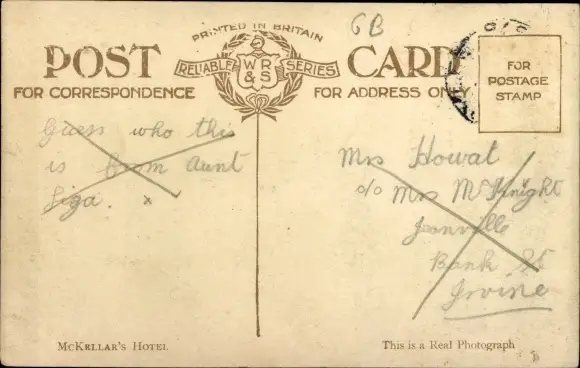 6B
PRINTED IN BRITAIN
POST CARD
RELIABLE WR&S SERIES
FOR CORRESPONDENCE
FOR ADDRESS ONLY
FOR
POSTAGE
STAMP
Guess who this
is from Aunt
Liza. x
Mrs Howat
c/o Mrs McKnight
Jeanville
Bank St
Irvine
McKELLAR'S HOTEL
This is a Real Photograph